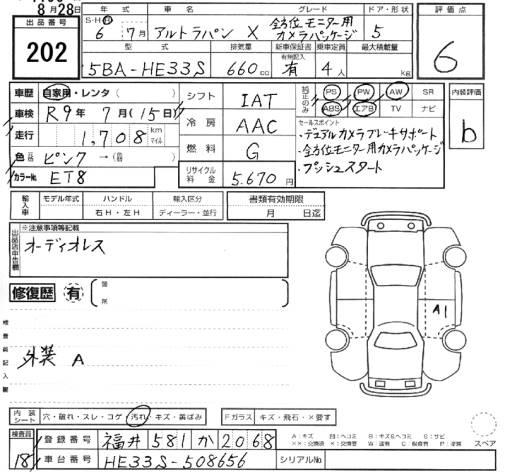 8月28日
出品番号
202
年式 車名 グレード ドア・形状
S・H・R 6年 7月 アルトラパン X 全方位モニター用カメラパッケージ 5
型式 排気量 新車保証書 乗車定員 最大積載量
有無記入
5BA-HE33S 660cc 有 4人 kg
評価点
6
車歴 自家用・レンタ ( )
車検 R9年 7月 (15日)
走行 1,708 km マイル
色 ピンク →
カラーNo. ET8
シフト IAT
冷房 AAC
燃料 G
リサイクル料金 5,670円
純正のみ PS PW AW SR
ABS エアB TV ナビ
セールスポイント
・デュアルカメラブレーキサポート
・全方位モニター用カメラパッケージ
・プッシュスタート
内装評価
b
輸入車 モデル年式 ハンドル 輸入区分 書類有効期限
右H・左H ディーラー・並行 月 日迄
出品店申告欄
※注意事項等記載
オーディオレス
修復歴 有 箇所
検査員記入欄
外装 A
A1
内装シート 穴・破れ・スレ・コゲ・汚れ・キズ・黄ばみ
Fガラス キズ・飛石・×要す
スペア
検査員
18
登録番号 福井 581 か 2068
車台番号 HE33S-508656
シリアルNo.